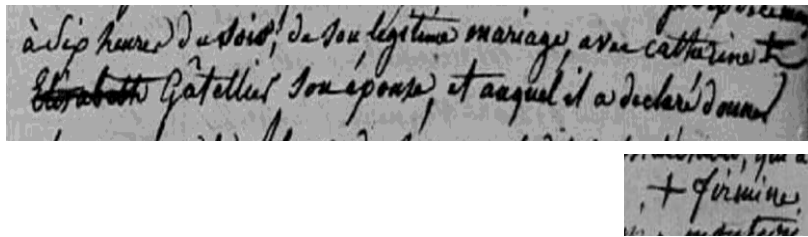 à six heures du soir, de son légitime mariage, avec catherine +
Elisabeth Gâtellier son épouse, et auquel il a declaré donner
+ firmine